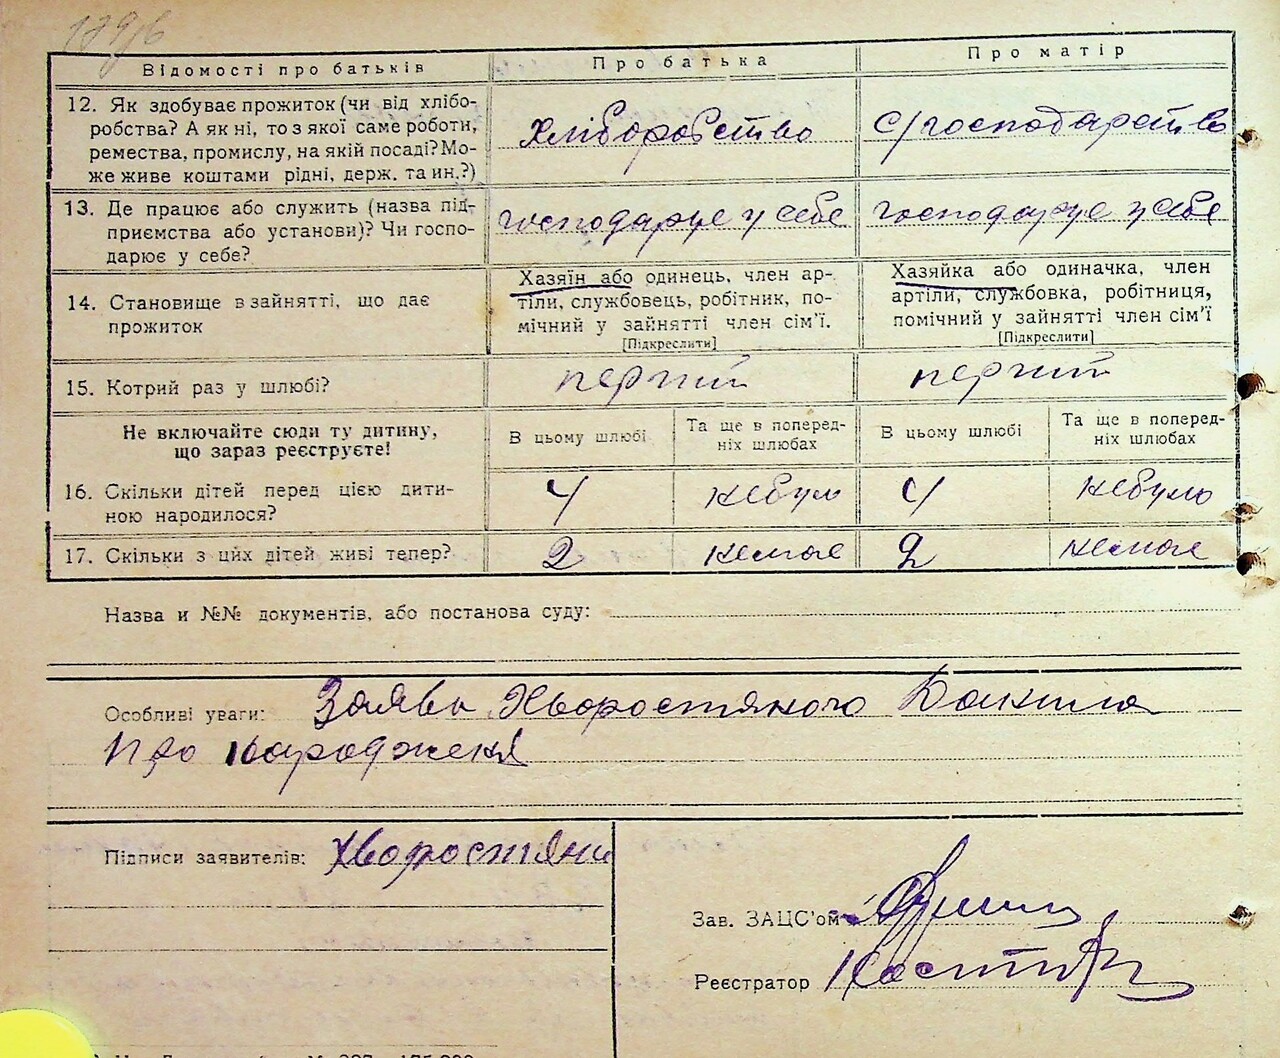 179/6
Відомості про батьків
Про батька
Про матір
12. Як здобуває прожиток (чи від хлібо-
робства? А як ні, то з якої саме роботи,
ремества, промислу, на якій посаді? Мо-
же живе коштами рідні, держ. та ин.?)
Хліборобство
с/господарство
13. Де працює або служить (назва під-
приємства або установи)? Чи госпо-
дарює у себе?
господарує у себе
господарує у себе
14. Становище в зайнятті, що дає
прожиток
Хазяїн або одинець, член ар-
тіли, службовець, робітник, по-
мічний у зайнятті член сім'ї.
[Підкреслити]
Хазяйка або одиначка, член
артіли, службовка, робітниця,
помічний у зайнятті член сім'ї
[Підкреслити]
15. Котрий раз у шлюбі?
перший
перший
Не включайте сюди ту дитину,
що зараз реєструєте!
В цьому шлюбі
Та ще в поперед-
ніх шлюбах
В цьому шлюбі
Та ще в поперед-
ніх шлюбах
16. Скільки дітей перед цією дити-
ною народилося?
4
небуло
4
небуло
17. Скільки з цих дітей живі тепер?
2
немає
2
немає
Назва и №№ документів, або постанова суду:
Особливі уваги: Заява Хворостяного Данила
Про народженя
Підписи заявителів: Хворостяни
Зав. ЗАЦС'ом
Реєстратор